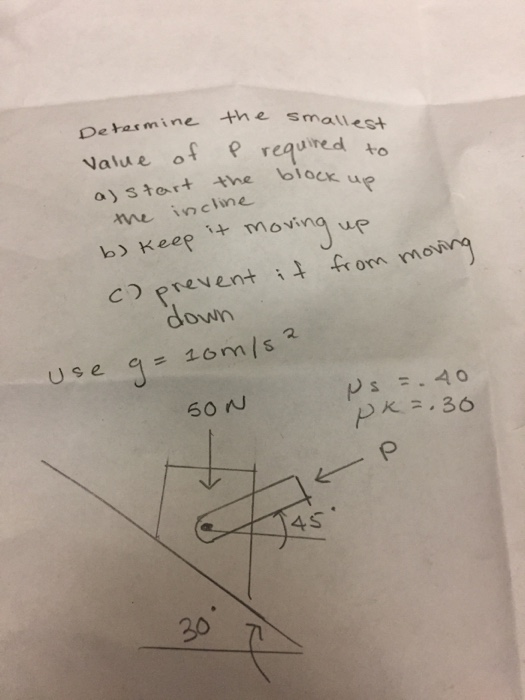 Determine the smallest
value of P required to
a) start the block up
the incline
b) Keep it moving up
c) prevent it from moving
down
Use g = 10m/s²
50 N
μs = .40
μk = .30
P
45°
30°